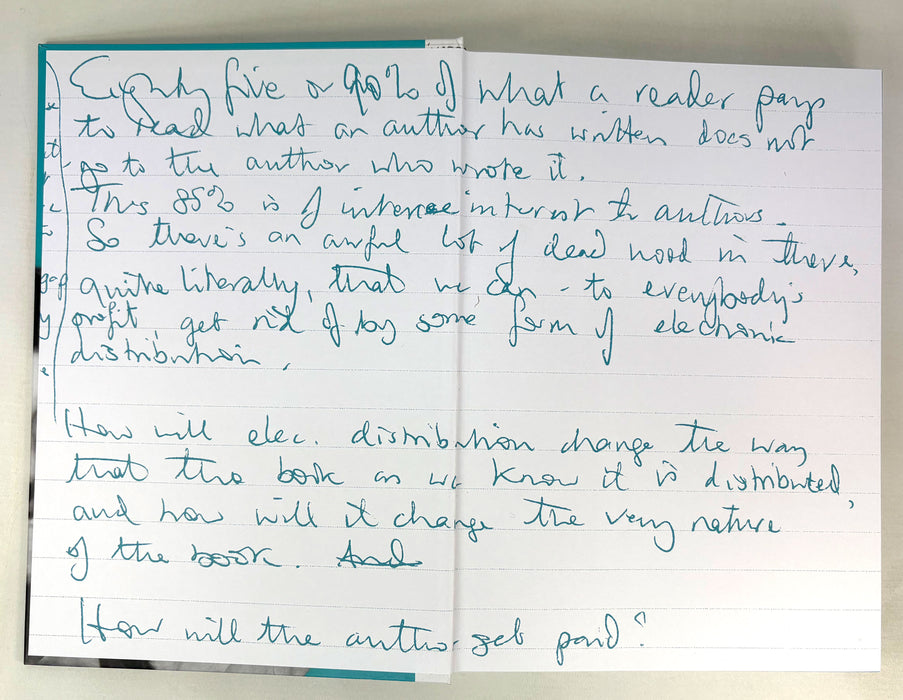 Eighty five or 90% of what a reader pays
to read what an author has written does not
go to the author who wrote it.
This 85% is of intense interest to authors.
So there's an awful lot of dead wood in there,
quite literally, that we can - to everybody's
profit, get rid of by some form of electronic
distribution.
How will elec. distribution change the way
that the book as we know it is distributed,
and how will it change the very nature
of the book. And
How will the author get paid?